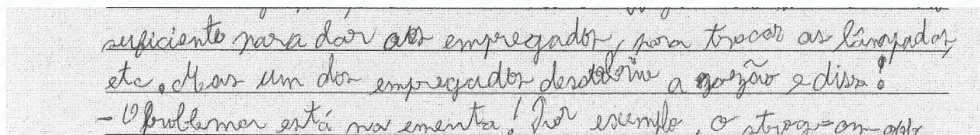 suficiente para dar aos empregados, para trocar as lâmpadas,
etc. Mas um dos empregados descobriu a razão e diss:
- O problema está na ementa! Por exemplo, o